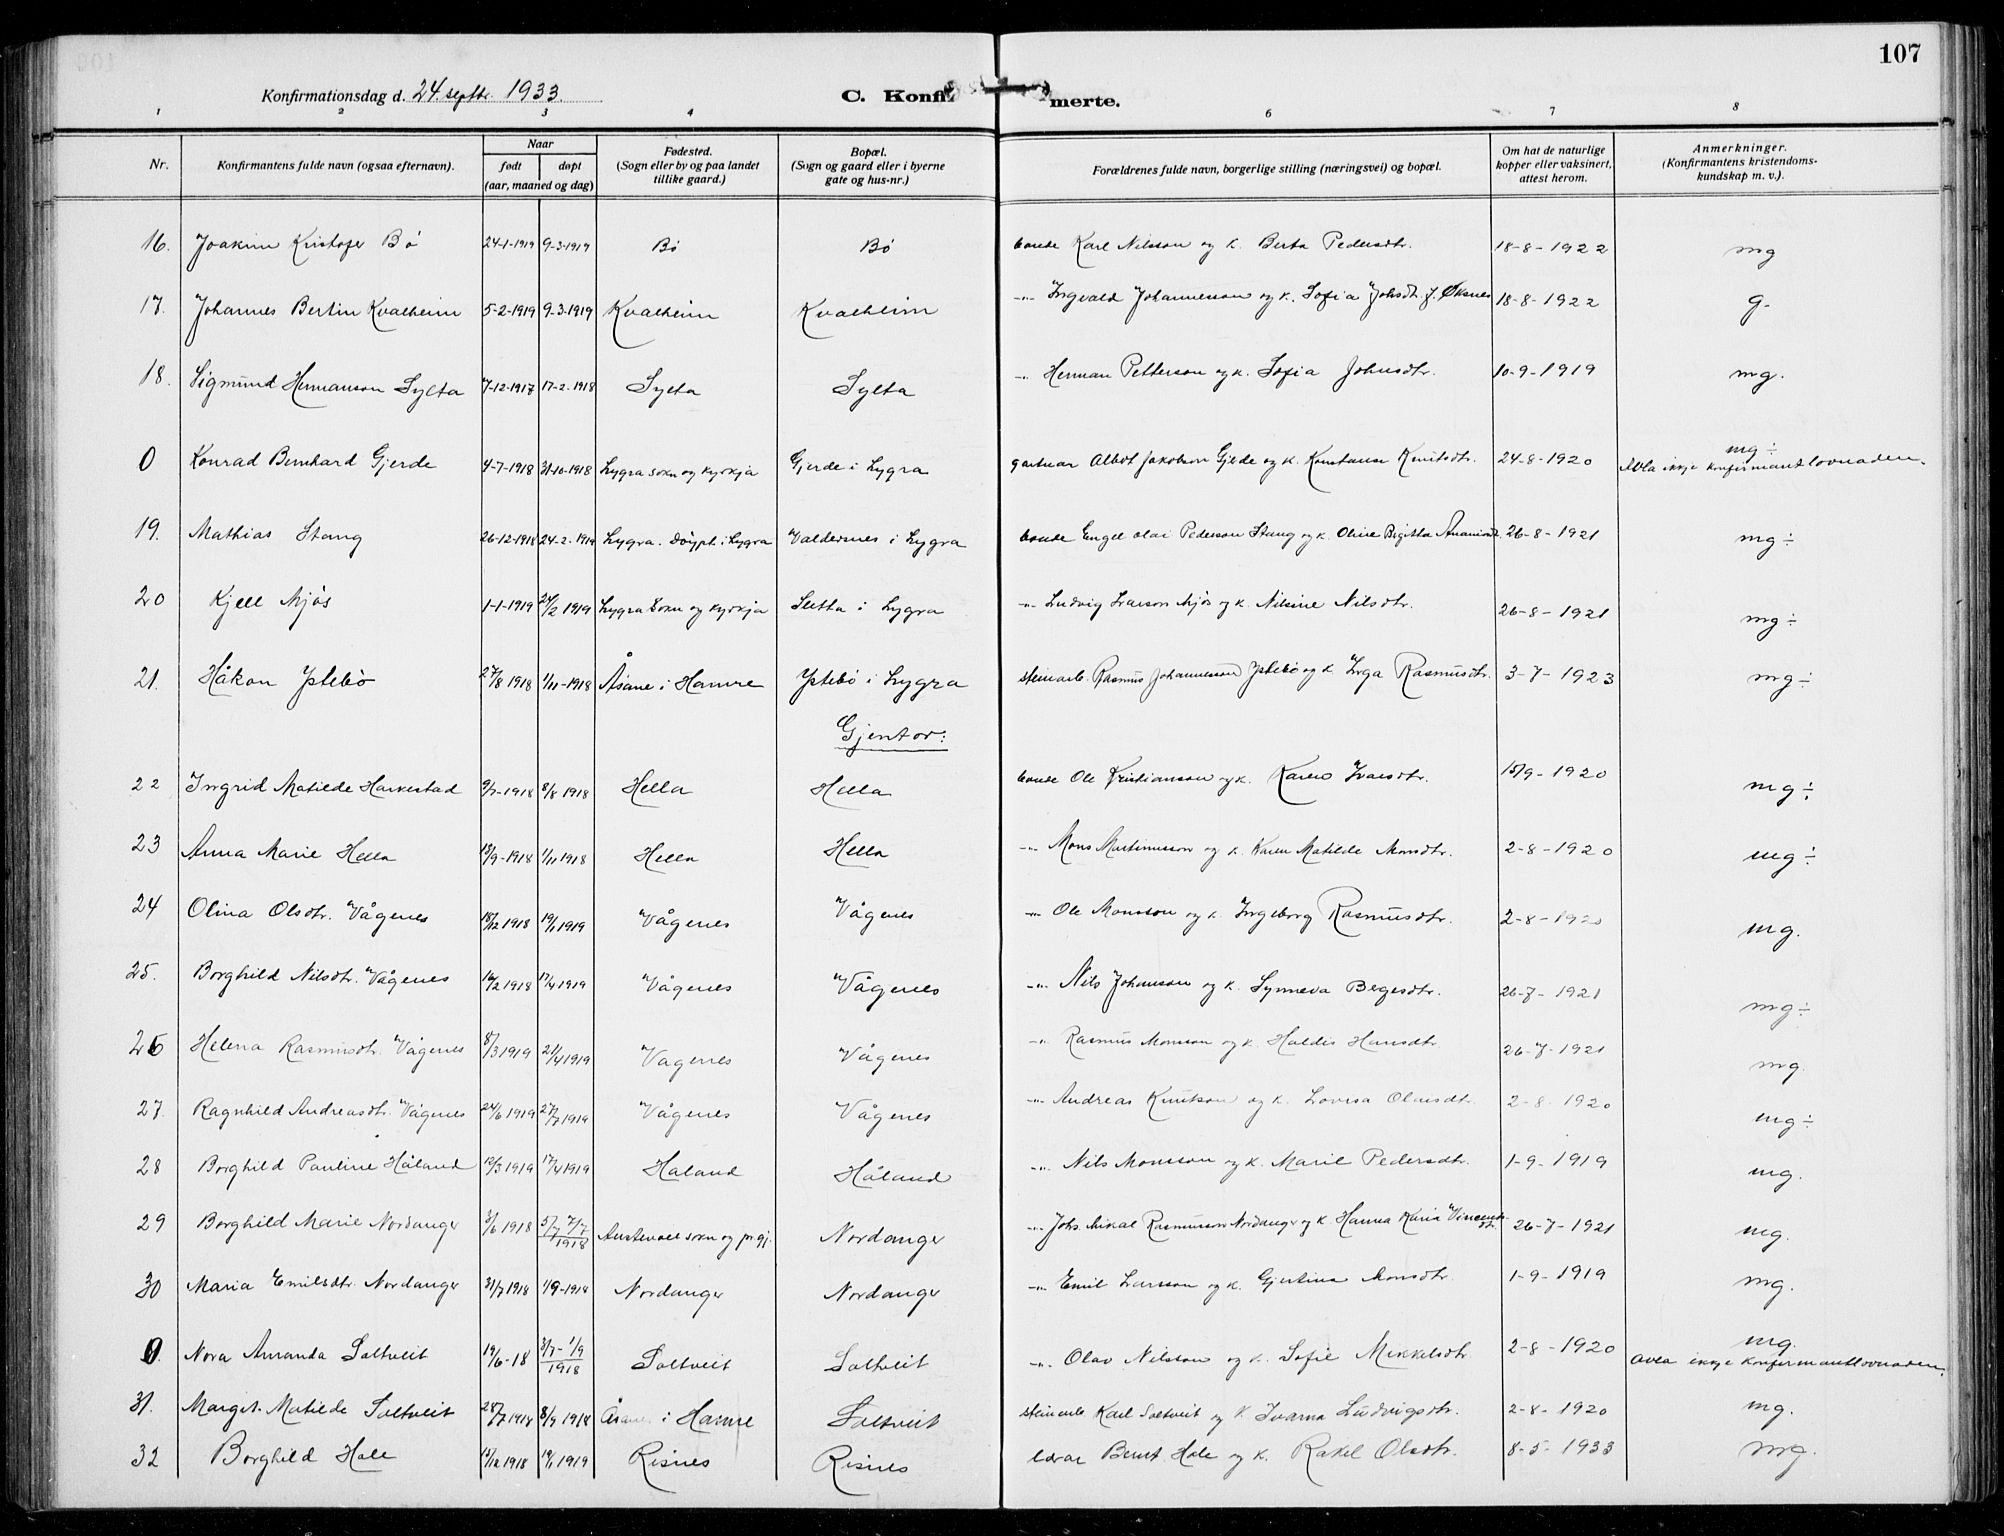 107
Konfirmationsdag d. 24. septbr. 1933.
C. Konfi merte.
1 2 3 4 6 7 8
Nr. Konfirmantens fulde navn (ogsaa efternavn). Naar født døpt (aar, maaned og dag) Fødested. (Sogn eller by og paa landet tillike gaard.) Bopæl. (Sogn og gaard eller i byerne gate og hus-nr.) Forældrenes fulde navn, borgerlige stilling (næringsvei) og bopæl. Om hat de naturlige kopper eller vaksinert, attest herom. Anmerkninger. (Konfirmantens kristendoms-kundskap m. v.).
16. Joakim Kristofer Bø 24-1-1919 9-3-1919 Bø Bø bonde Karl Nilsson og k. Berta Pedersdtr. 18-8-1922 mg
17. Johannes Bertin Kvalheim 5-2-1919 9-3-1919 Kvalheim Kvalheim -"- Ingvald Johannesson og k. Sofia Johsdt. f. Øksnes 18-8-1922 g.
18. Sigmund Hermanson Sylta 7-12-1917 17-2-1918 Sylta Sylta -"- Herman Petterson og k. Sofia Johnsdtr. 10-9-1919 mg.
0 Konrad Bernhard Gjerde 4-7-1918 31-10-1918 Lygra sokn og kyrkja Gjerde i Lygra gartnar Albert Jakobson Gjerde og k. Konstanse Knutsdtr. 24-8-1920 mg ÷
Avla ikkje konfirmantlovnaden.
19. Mathias Stang 26-12-1918 24-2-1919 Lygra. Døypt i Lygra Valdersnes i Lygra bonde Engel Olai Pederson Stang og k. Oline Birgitta 26-8-1921 mg ÷
20 Kjell Mjøs 1-1-1919 24/2 1919 Lygra Sokn og kyrkja Sletta i Lygra -"- Ludvig Larson Mjøs og k. Nilsine Nilsdtr. 26-8-1921 mg ÷
21. Håkon Ystebø 27/8 1918 1/11-1918 Åsane i Hamre Ystebø i Lygra steinarb. Rasmus Johannesson Ystebø og k. Inga Rasmusdtr. 3-7-1923 mg ÷
Gjentor:
22 Ingrid Matilde Harkestad 9/7-1918 8/8 1918 Hella Hella bonde Ole Kristianson og k. Karen Ivarsdtr. 15/9-1920 mg ÷
23 Anna Marie Hella 13/9-1918 1/11 1918 Hella Hella -"- Mons Martinusson og k. Karen Matilde Monsdtr. 2-8-1920 mg ÷
24 Olina Olsdtr. Vågenes 18/12 1918 19/1 1919 Vågenes Vågenes -"- Ole Monsson og k. Ingeborg Rasmusdtr. 2-8-1920 mg.
25. Borghild Nilsdtr. Vågenes 16/2 1918 17/4 1919 Vågenes Vågenes -"- Nils Johanson og k. Synneva Bergesdtr. 26-7-1921 mg ÷
26 Helena Rasmusdtr. Vågenes 8/3 1919 21/4 1919 Vågenes Vågenes -"- Rasmus Monsson og k. Haldis Hansdtr 26-7-1921 mg.
27. Ragnhild Andreasdtr. Vågenes 24/6 1919 27/7 1919 Vågenes Vågenes -"- Andreas Knutson og k. Lovisa Olaisdtr. 2-8-1920 mg ÷
28 Borghild Pauline Håland 12/3 1919 17/4 1919 Håland Håland -"- Nils Monsson og k. Marie Pedersdtr. 1-9-1919 mg.
29 Borghild Marie Nordanger 3/6 1918 5/7 7/7 1918 Austevoll sokn og pr.gj. Nordanger -"- Johs. Mikal Rasmusson Nordanger og k. Hanna Karia Vincentsdtr. 26-7-1921 mg.
30 Maria Emilsdtr. Nordanger 31/7 1918 1/9-1918 Nordanger Nordanger -"- Emil Larsson og k. Gjertina Monsdtr. 1-9-1919 mg.
0. Nora Amanda Saltveit 19/6-18 3/7-1/9 1918 Saltveit Saltveit -"- Olav Nilsson og k. Sofie Mikkelsdtr. 2-8-1920 mg.
Avla ikkje konfirmantlovnaden.
31. Margit Matilde Saltveit 28/7 1918 8/9 1918 Åsane i Hamre Saltveit steinarb. Karl Saltveit og k. Ivarna Ludvigsdtr. 2-8-1920 mg.
32 Borghild Hole 15/12 1918 19/1 1919 Risnes Risnes lærar Bernt Hole og k. Rakel Olsdtr. 8-5-1933 mg.